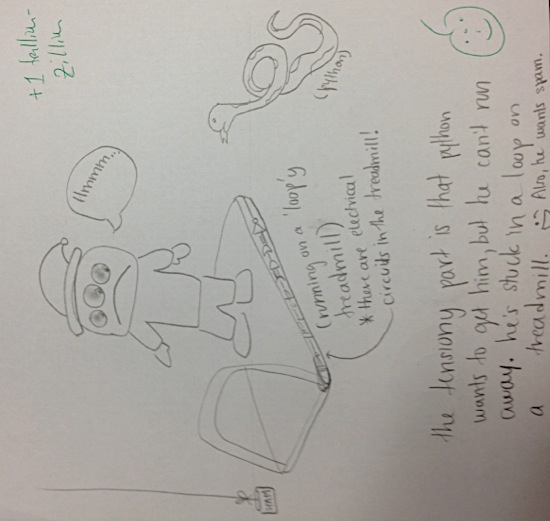 +1
Zillium
Hmmm...
SPAM
(python)
(running on a 'loop'y
treadmill)
* there are electrical
circuits in the treadmill!
the tensiony part is that python
wants to get him, but he can't run
away. he's stuck in a loop on
a treadmill. Also, he wants spam.